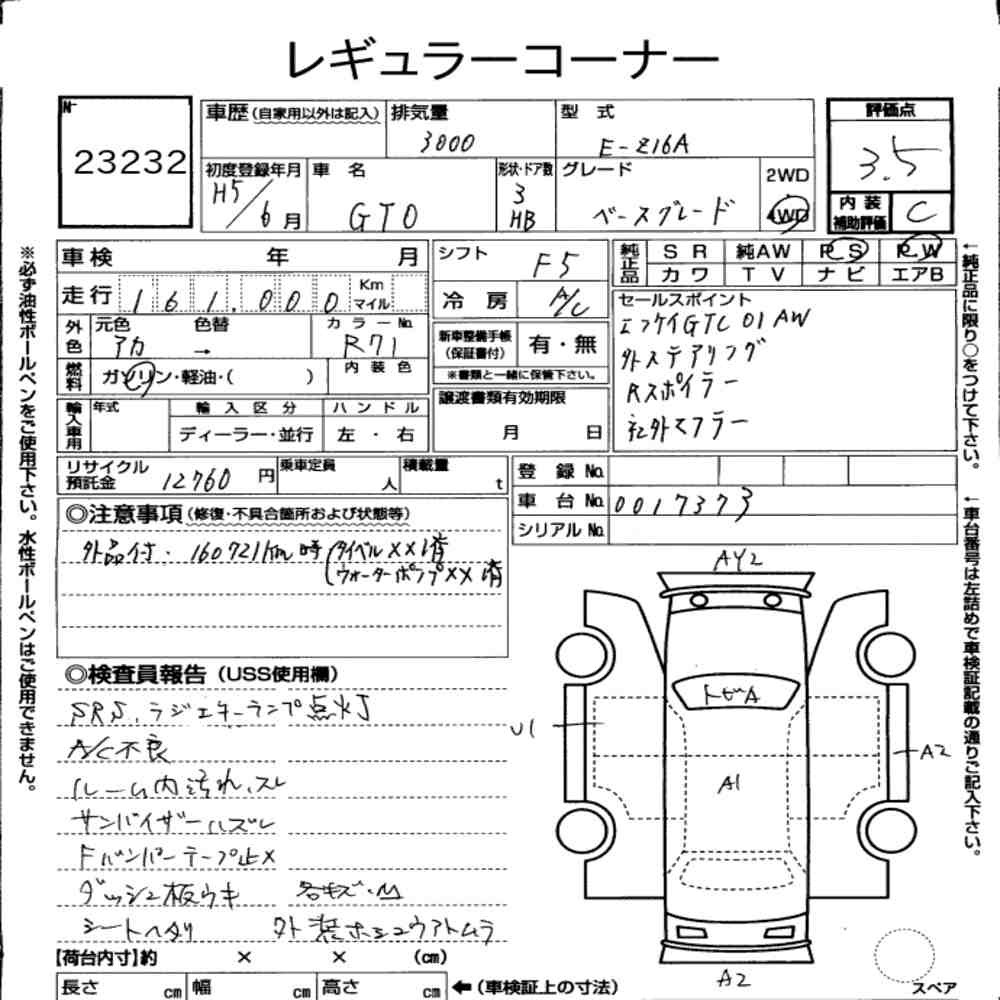 レギュラーコーナー
No.
23232
車歴(自家用以外は記入)
排気量
3000
型 式
E-Z16A
評価点
3.5
初度登録年月
H5/6月
車 名
GTO
形状・ドア数
3
HB
グレード
ベースグレード
2WD
4WD
内装
補助評価
C
車検 年 月
シフト
F5
純正品
S R 純AW P S P W
カワ T V ナビ エアB
走行 161,000 Km マイル
冷 房
A/C
セールスポイント
エフケイGTC 01 AW
外ステアリング
Rスポイラー
社外マフラー
外色
元色 色替
アカ →
カラーNo.
R71
新車整備手帳
(保証書付)
有・無
※書類と一緒に保管下さい。
燃料
ガソリン・軽油・( )
内装色
輸入車用
年式
輸入区分
ハンドル
ディーラー・並行
左・右
譲渡書類有効期限
月 日
リサイクル
預託金
12760 円
乗車定員
人
積載量
t
登録No.
車台No.
0017373
シリアルNo.
◎注意事項(修復・不具合箇所および状態等)
外品付. 160721km時(タイベル××済
ウォーターポンプ××済
◎検査員報告(USS使用欄)
SRS.ラジエターランプ点灯
A/C不良
ルーム内汚れ、スレ
サンバイザーハズレ
Fバンパーテープ止×
ダッシュ板ウキ 各キズ・凹
シートヘタリ 外装ホシュウアトムラ
AY2
トビA
U1
A2
A1
A2
スペア
【荷台内寸】約 × × (cm)
長さ cm 幅 cm 高さ cm ←(車検証上の寸法)
※必ず油性ボールペンをご使用下さい。水性ボールペンはご使用できません。
←純正品に限り○をつけて下さい。
←車台番号は左詰めで車検証記載の通りご記入下さい。